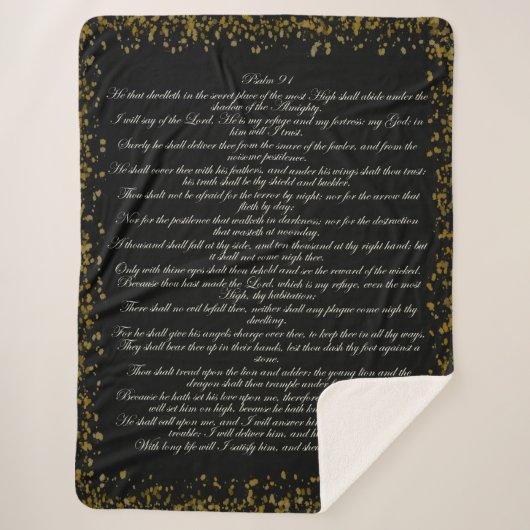 Psalm 91
He that dwelleth in the secret place of the most High shall abide under the
shadow of the Almighty.
I will say of the Lord, He is my refuge and my fortress: my God; in
him will I trust.
Surely he shall deliver thee from the snare of the fowler, and from the
noisome pestilence.
He shall cover thee with his feathers, and under his wings shalt thou trust:
his truth shall be thy shield and buckler.
Thou shalt not be afraid for the terror by night; nor for the arrow that
flieth by day;
Nor for the pestilence that walketh in darkness; nor for the destruction
that wasteth at noonday.
A thousand shall fall at thy side, and ten thousand at thy right hand; but
it shall not come nigh thee.
Only with thine eyes shalt thou behold and see the reward of the wicked.
Because thou hast made the Lord, which is my refuge, even the most
High, thy habitation;
There shall no evil befall thee, neither shall any plague come nigh thy
dwelling.
For he shall give his angels charge over thee, to keep thee in all thy ways.
They shall bear thee up in their hands, lest thou dash thy foot against a
stone.
Thou shalt tread upon the lion and adder: the young lion and the
dragon shalt thou trample under
Because he hath set his love upon me, therefore
will set him on high, because he hath
He shall call upon me, and I will answer him
trouble; I will deliver him, and
With long life will I satisfy him, and